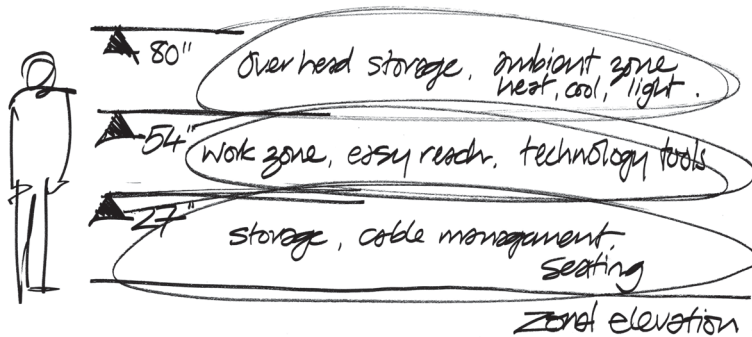 80"
overhead storage, ambient zone
heat, cool, light.
54"
work zone, easy reach, technology tools
27"
storage, cable management,
seating
zonal elevation